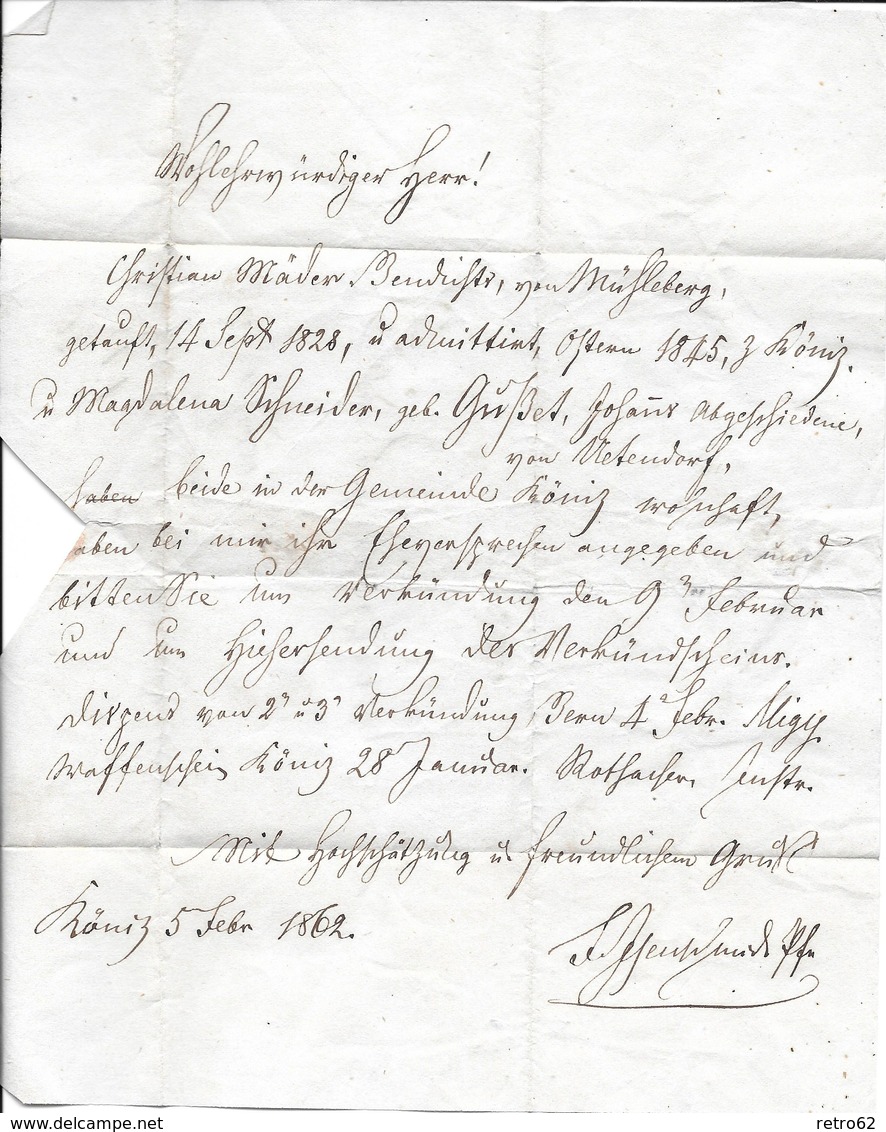 Wohlehrwürdiger Herr!
Christian Mäder Bendichts, von Mühleberg,
getauft, 14 Sept 1828, u admittirt, Ostern 1845, z Köniz.
u Magdalena Schneider, geb. Gußet, Johanns Abgeschiedene,
von Uetendorf,
haben beide in der Gemeinde Köniz wohnhaft,
aben bei mir ihr Eheversprechen angegeben und
bitten Sie um Verkündung den 9n Februar
und um Hiehersendung des Verkündscheins.
Dispens von 2r u 3r Verkündung, Bern 4r Febr.
Waffenschein Köniz 28 Januar. Rothacher, Instr.
Mit Hochschätzung u freundlichem Gruß
Köniz 5 Febr 1862.
Pfr
www.delcampe.net
retro62